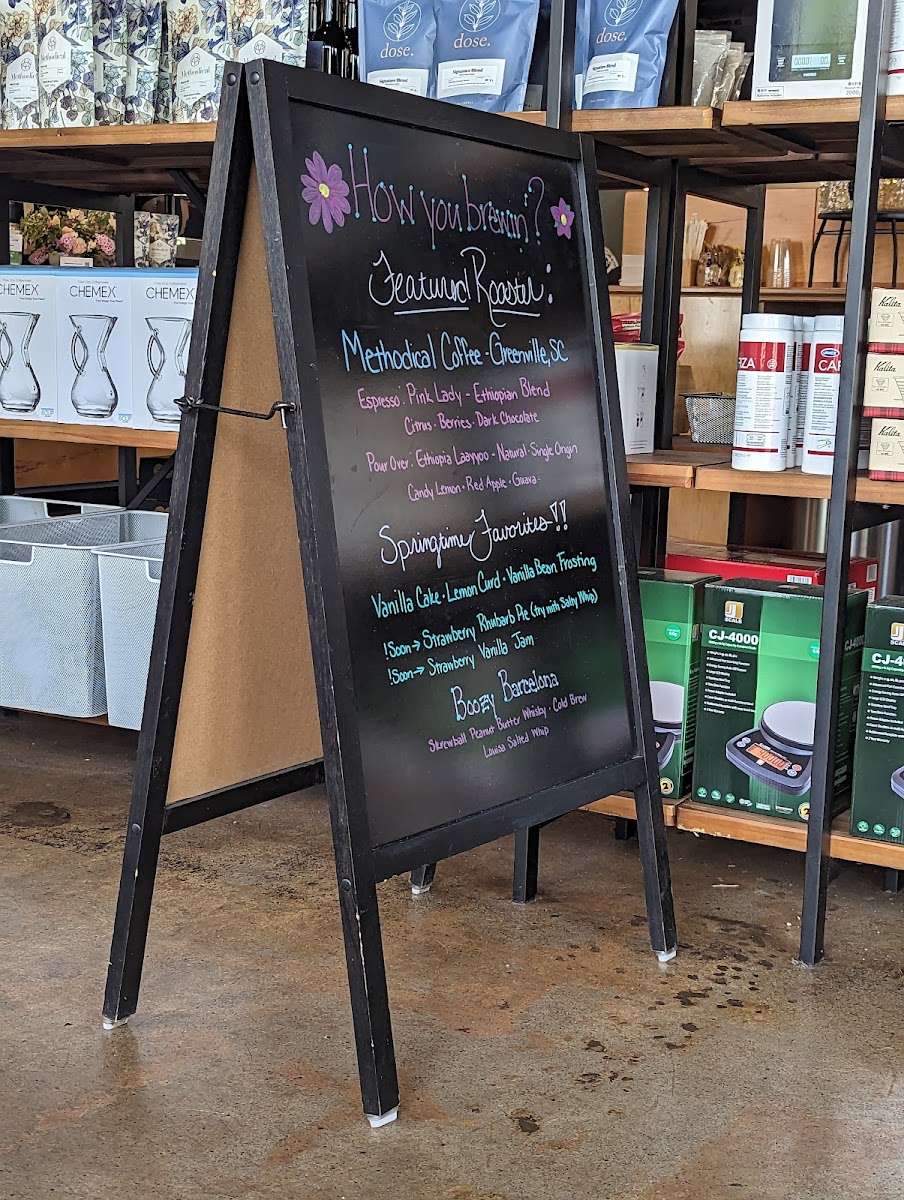 Methodical
Methodical
dose.
Signature Blend
dose.
Signature Blend
dose.
Signature Blend
How you brewin'?
Featured Roaster:
Methodical Coffee - Greenville, SC
Espresso: Pink Lady - Ethiopian Blend
Citrus · Berries · Dark Chocolate
Pour Over: Ethiopia Laayyoo - Natural · Single Origin
Candy Lemon · Red Apple · Guava
Springtime Favorites!!
Vanilla Cake · Lemon Curd · Vanilla Bean Frosting
!Soon→ Strawberry Rhubarb Pie (try with Salty Whip)
!Soon→ Strawberry Vanilla Jam
Boozy Barcelona
Skrewball Peanut Butter Whisky · Cold Brew
Louisa Salted Whip
CHEMEX
CHEMEX
CHEMEX
ZA
CAF
Kalita
Kalita
Kalita
SCALE
CJ-4000
CJ-4